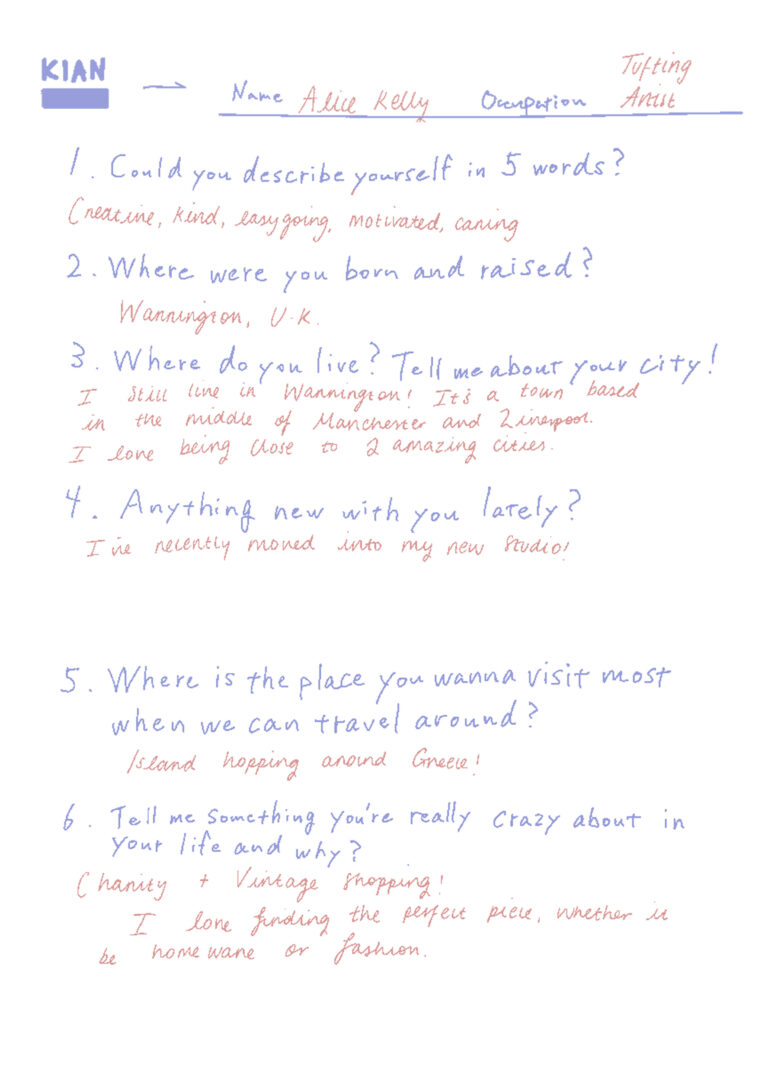 KIAN
Name Alice Kelly Occupation Tufting Artist
1. Could you describe yourself in 5 words?
Creative, kind, easygoing, motivated, caring
2. Where were you born and raised?
Warrington, U.K.
3. Where do you live? Tell me about your city!
I still live in Warrington! It's a town based
in the middle of Manchester and Liverpool.
I love being close to 2 amazing cities.
4. Anything new with you lately?
I've recently moved into my new studio!
5. Where is the place you wanna visit most
when we can travel around?
Island hopping around Greece!
6. Tell me something you're really crazy about in
your life and why?
Charity + Vintage shopping!
I love finding the perfect piece, whether it
be homeware or fashion.